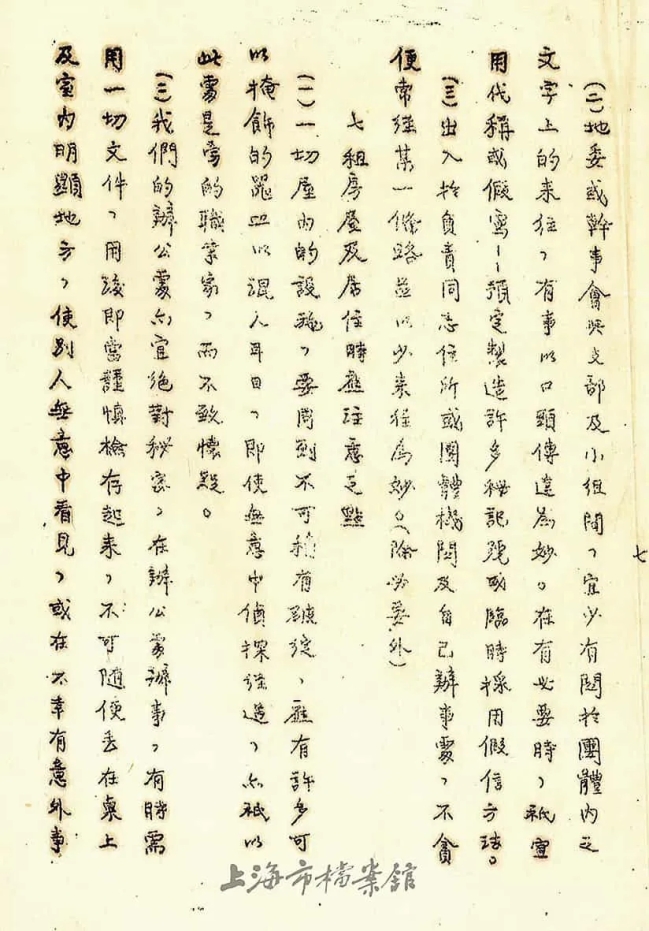 (二)地委或幹事會與支部及小組間,宜少有關於團體內之
文字上的來往,有事以口頭傳達為妙。在有必要時,祇宜
用代稱或假寫——預定製造許多秘記號或臨時採用假信方法。
(三)出入於負責同志住所或團體機關及自己辦事處,不貪
便常經某一條路並以少來往為妙。(除必要外)
七 租房屋及居住時應注意之點
(一)一切屋內的設,要周到不可稍有破綻,應有許多可
以掩飾的器皿以混人耳目,即使無意中偵探經過,亦祇以
此處是當的職業家,而不致懷疑。
(三)我們的辦公處亦宜絕對秘密,在辦公處辦事,有時需
用一切文件,用後即當謹慎檢存起來,不可隨便丟在桌上
及室內明顯地方,使別人無意中看見,或在不幸有意外事
七
上海市檔案館